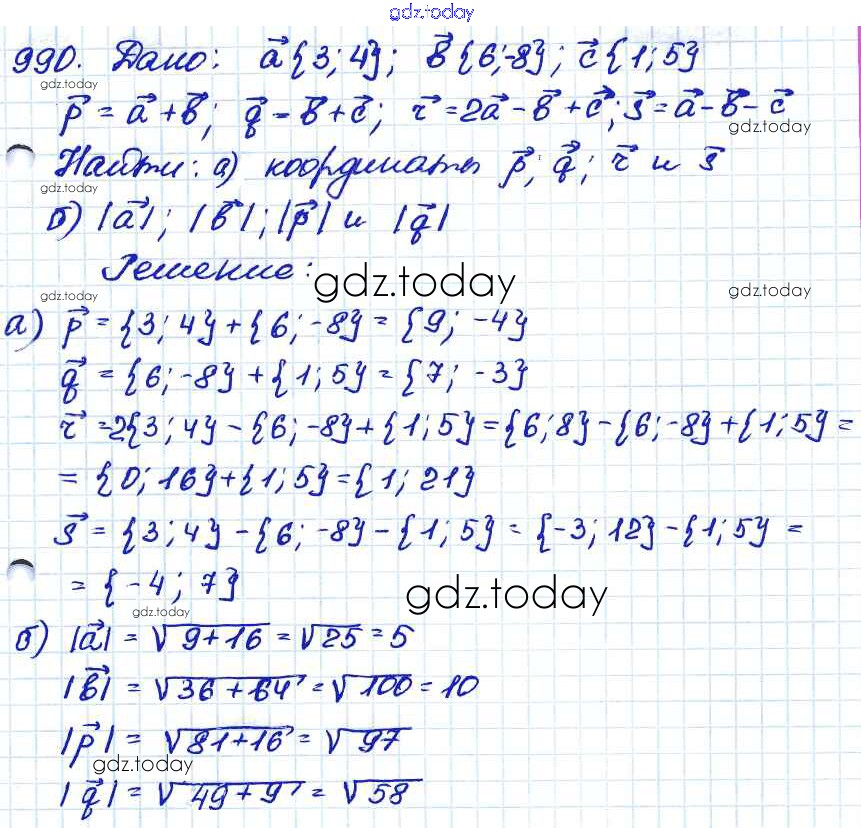 gdz.today
990. Дано: a⃗{3; 4}; b⃗{6;-8}; c⃗{1; 5}
gdz.today
p⃗ = a⃗ + b⃗; q⃗ = b⃗ + c⃗; r⃗ = 2a⃗ - b⃗ + c⃗; s⃗ = a⃗ - b⃗ - c⃗
gdz.today
Найти: а) координаты p⃗, q⃗; r⃗ и s⃗
gdz.today
б) |a⃗|; |b⃗|; |p⃗| и |q⃗|
Решение:
gdz.today
gdz.today
gdz.today
а) p⃗ = {3; 4} + {6; -8} = {9; -4}
q⃗ = {6; -8} + {1; 5} = {7; -3}
r⃗ = 2{3; 4} - {6; -8} + {1; 5} = {6; 8} - {6; -8} + {1; 5} =
= {0; 16} + {1; 5} = {1; 21}
s⃗ = {3; 4} - {6; -8} - {1; 5} = {-3; 12} - {1; 5} =
= {-4; 7}
gdz.today
gdz.today
б) |a⃗| = √9+16 = √25 = 5
|b⃗| = √36+64 = √100 = 10
|p⃗| = √81+16 = √97
gdz.today
|q⃗| = √49+9 = √58